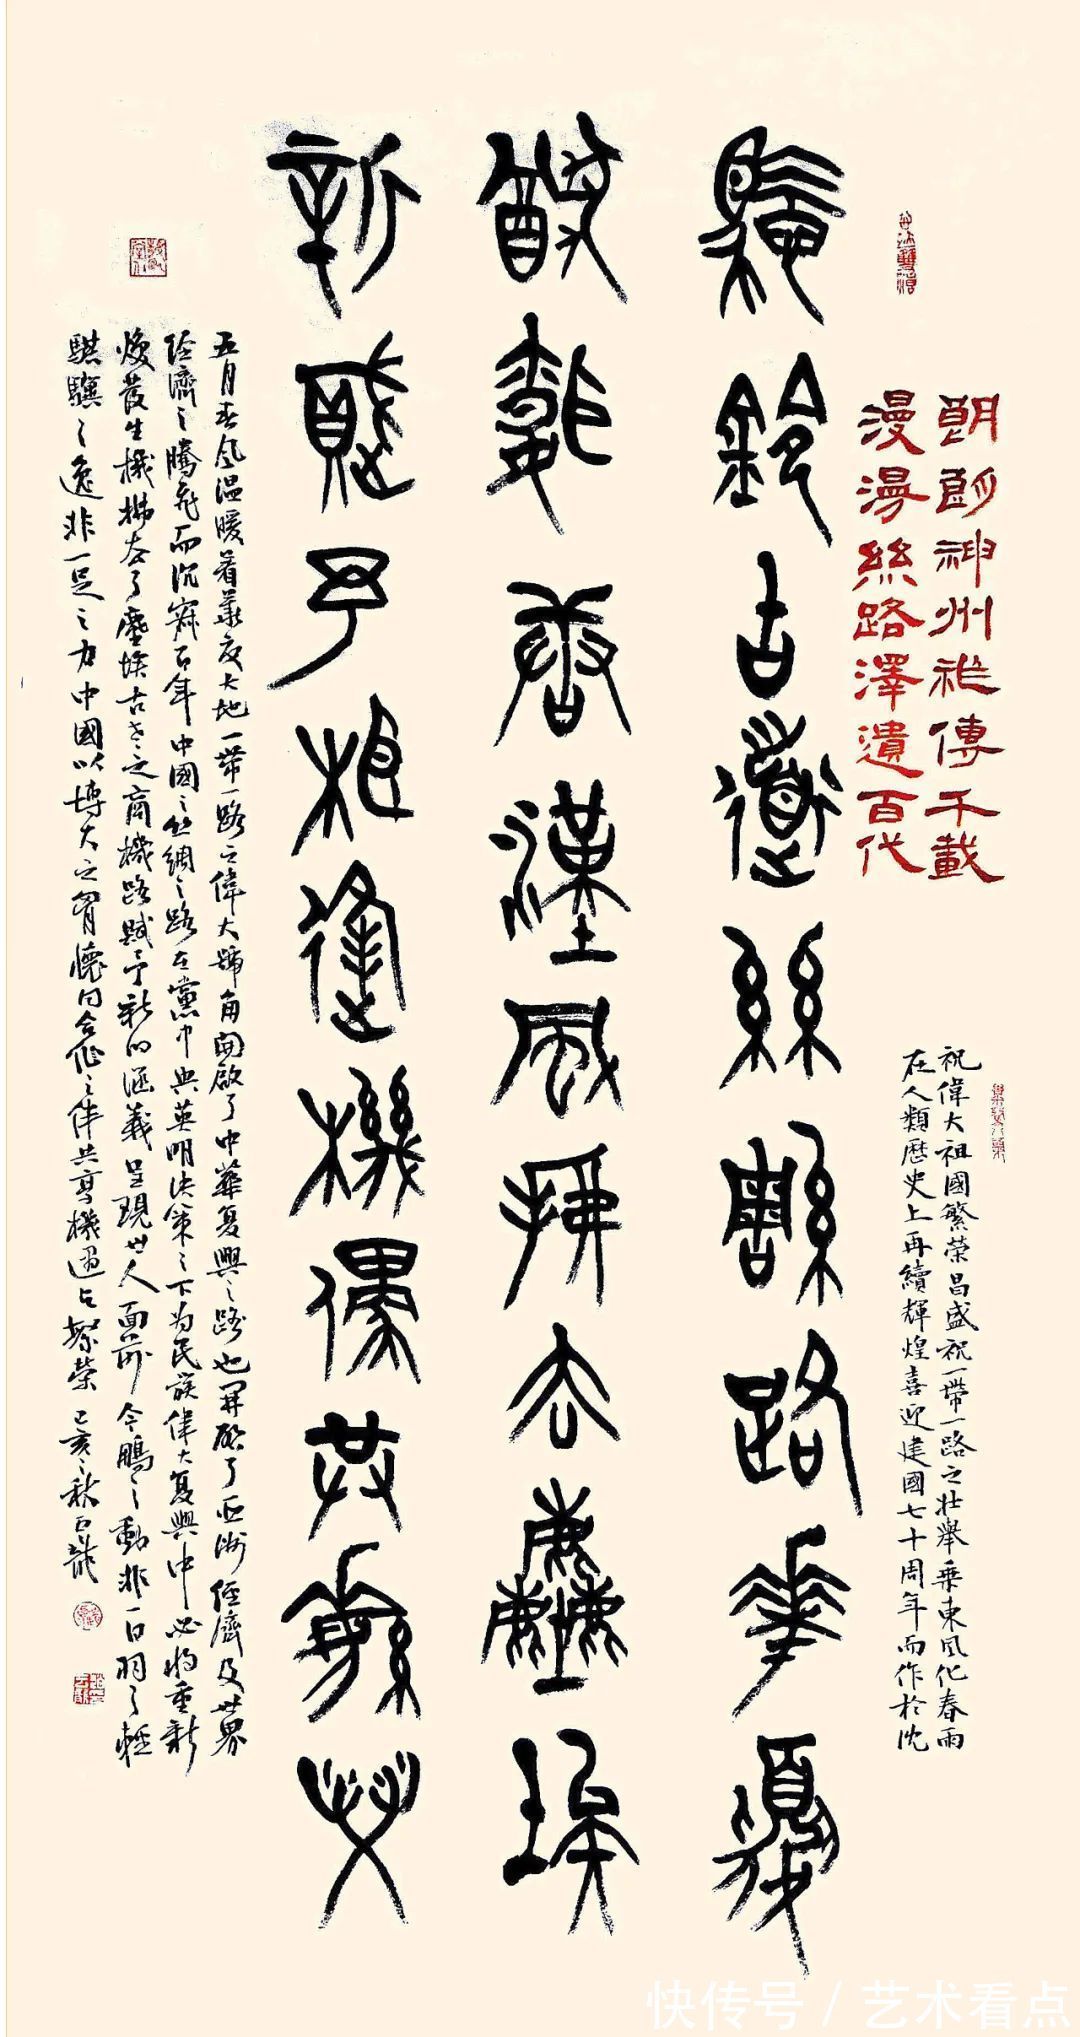 朗朗神州祚傳千載
漫漫絲路澤遺百代
祝偉大祖國繁荣昌盛祝一帶一路之壮舉乗東風化春雨
在人類歷史上再續輝煌喜迎建國七十周年而作於沈
鈴古道絲路華夏
唐漢風拂去塵埃
新予相逢機共繁
五月春风温暖着華夏大地一带一路之偉大號角開啟了中華复興之路也開啟了亞洲經濟及世界
經濟之騰飛而沉寂百年中國之丝綢之路在黨中央英明決策之下为民族偉大复興中必將重新
焕發生機拂去了塵埃古老之商機路賦予新的涵義呈現世人面前今鵬之動非一日羽之輕
騏驥之逸非一足之力中國以博大之胸懷同合作之伴共享機遇繁荣己亥之秋巨龍
快传号 / 艺术看点